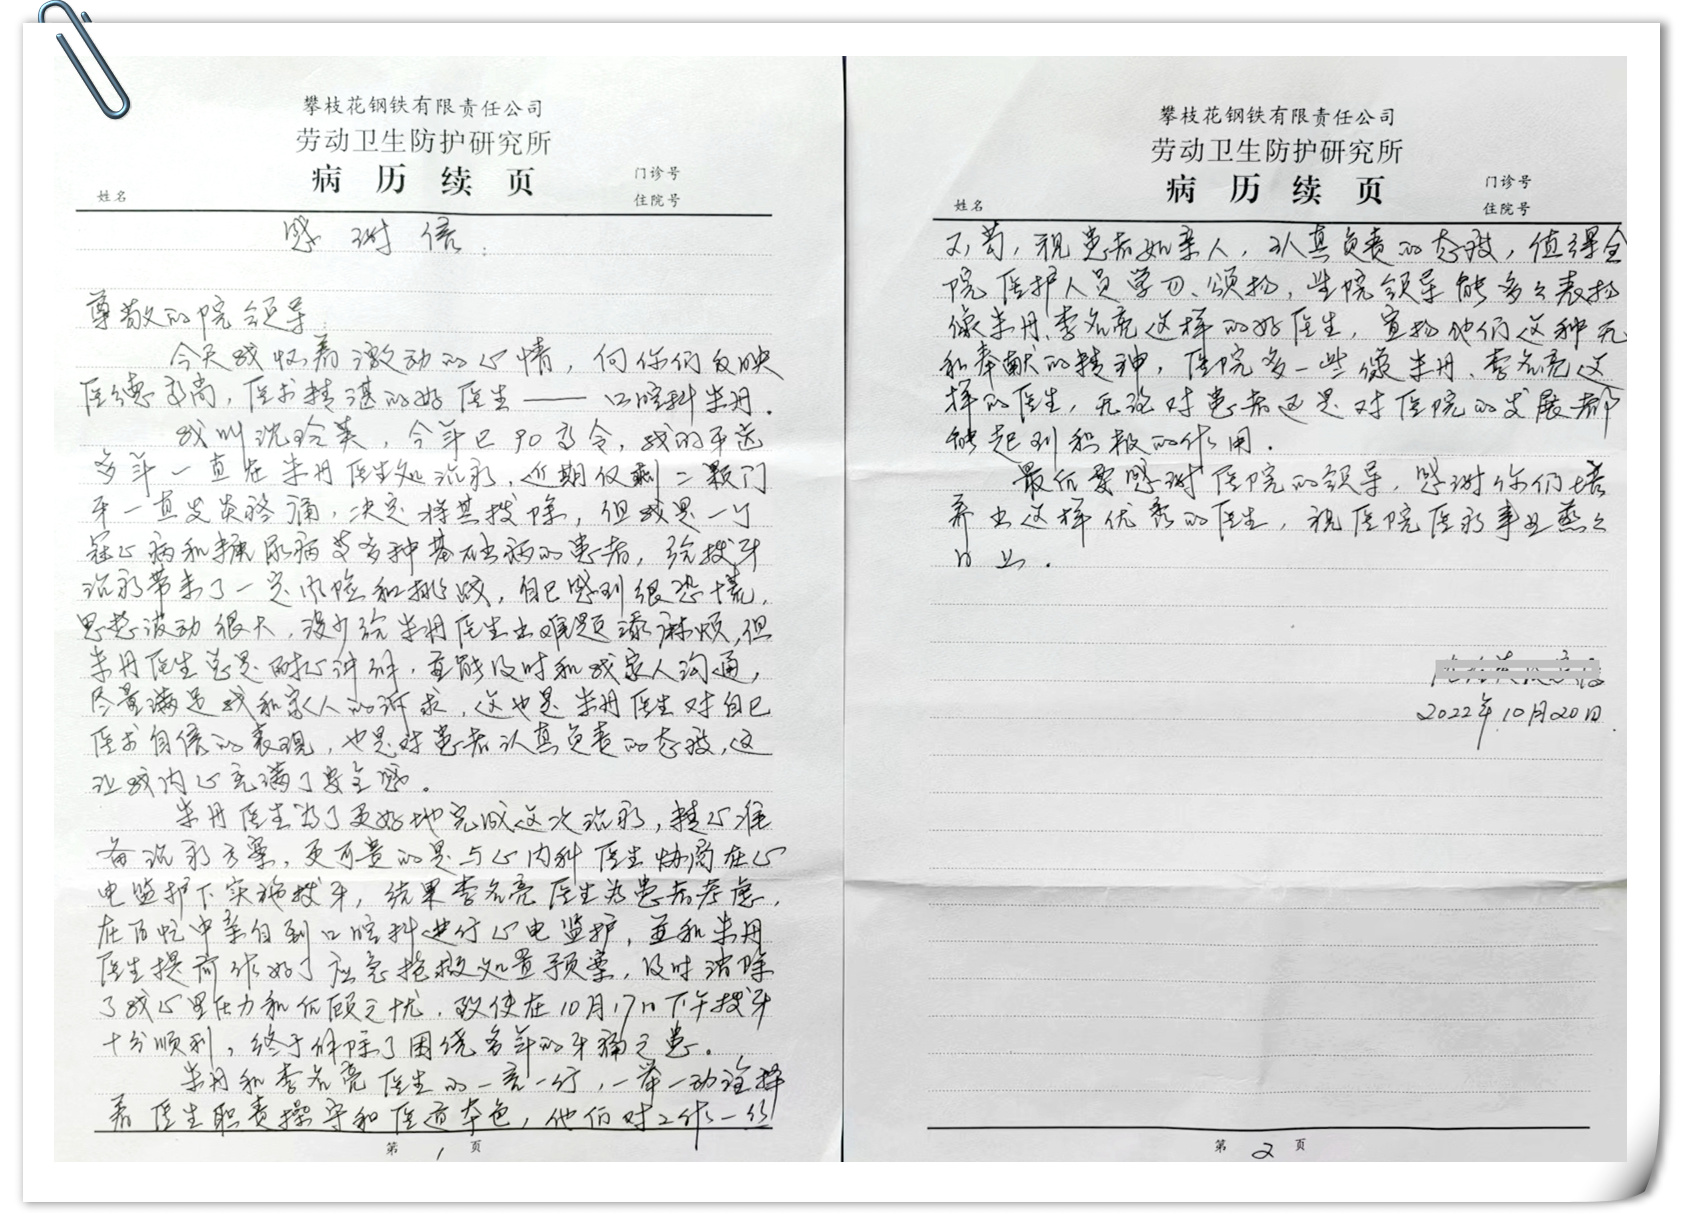 攀枝花钢铁有限责任公司
劳动卫生防护研究所
病历续页
门诊号
姓名
住院号
感谢信:
尊敬的院领导
今天我怀着激动的心情，向你们反映
医德高尚，医术精湛的好医生——口腔科朱丹.
我叫沈玲英，今年已90高令，我的牙近
多年一直在朱丹医生处治疗，近期仅剩二颗门
牙一直发炎疼痛，决定将其拔除，但我是一个
冠心病和糖尿病等多种基础病的患者，给拔牙
治疗带来了一定风险和挑战，自己感到很恐慌，
思想波动很大，没少给朱丹医生出难题添麻烦，但
朱丹医生总是耐心讲解，并能及时和我家人沟通，
尽量满足我和家人的诉求，这也是朱丹医生对自己
医术自信的表现，也是对患者认真负责的态度，这
让我内心充满了安全感。
朱丹医生为了更好地完成这次治疗，精心准
备治疗方案，更可贵的是与心内科医生协商在心
电监护下实施拔牙，结果李名亮医生为患者考虑，
在百忙中亲自到口腔科进行心电监护，并和朱丹
医生提前作好了应急抢救处置预案，及时消除
了我心里压力和后顾之忧，致使在10月17日下午拔牙
十分顺利，终于解除了困绕多年的牙痛之患。
朱丹和李名亮医生的一言一行，一举一动诠释
着医生职责操守和医道本色，他们对工作一丝
第 1 页
攀枝花钢铁有限责任公司
劳动卫生防护研究所
病历续页
门诊号
姓名
住院号
不苟，视患者如亲人，认真负责的态度，值得全
院医护人员学习、颂扬，望院领导能多多表扬
像朱丹、李名亮这样的好医生，宣扬他们这种无
私奉献的精神，医院多一些像朱丹、李名亮这
样的医生，无论对患者还是对医院的发展都
能起到积极的作用.
最后要感谢医院的领导，感谢你们培
养出这样优秀的医生，祝医院医疗事业蒸蒸
日上.
2022年10月20日
第 2 页